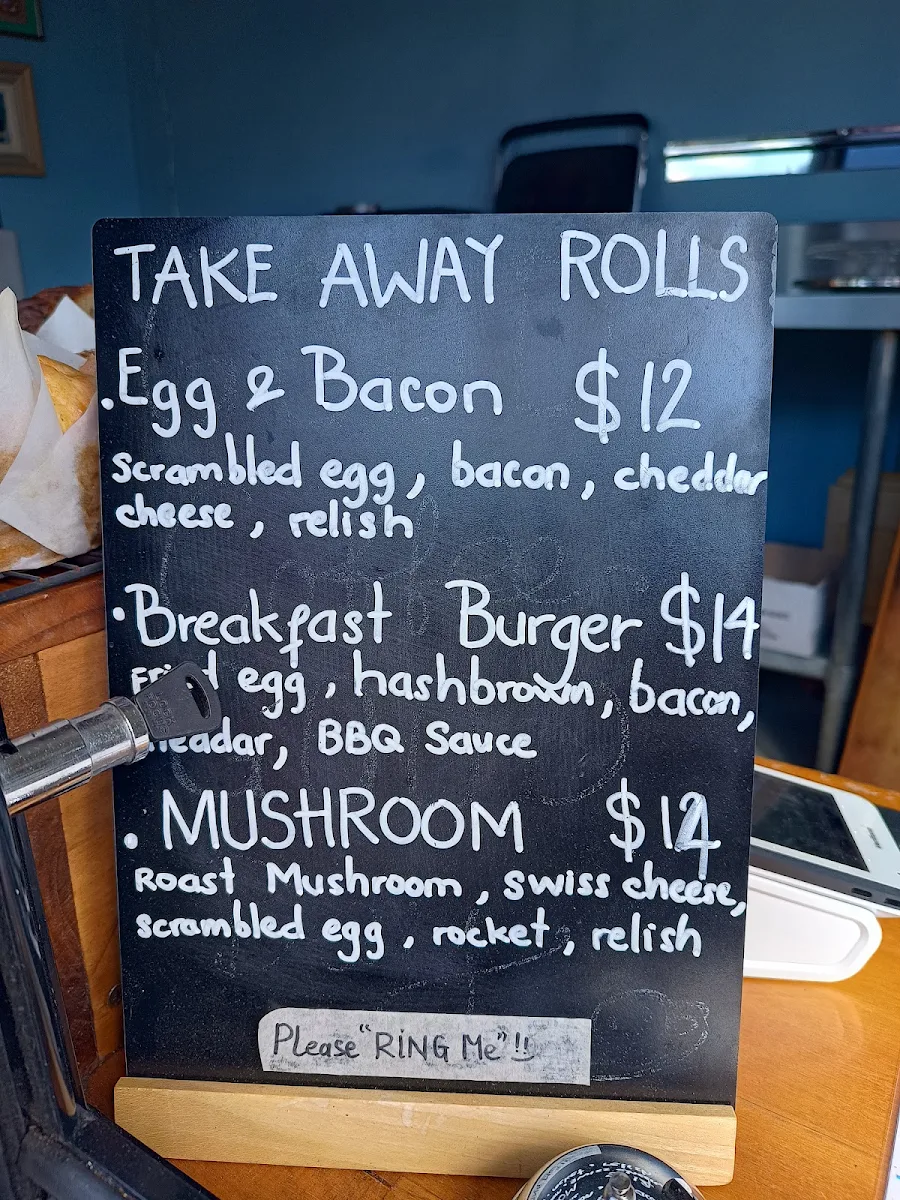 TAKE AWAY ROLLS
. Egg & Bacon $12
scrambled egg, bacon, cheddar
cheese, relish
. Breakfast Burger $14
Fried egg, hashbrown, bacon,
headar, BBQ Sauce
. MUSHROOM $14
Roast Mushroom, swiss cheese,
scrambled egg, rocket, relish
Please "RING Me"!!